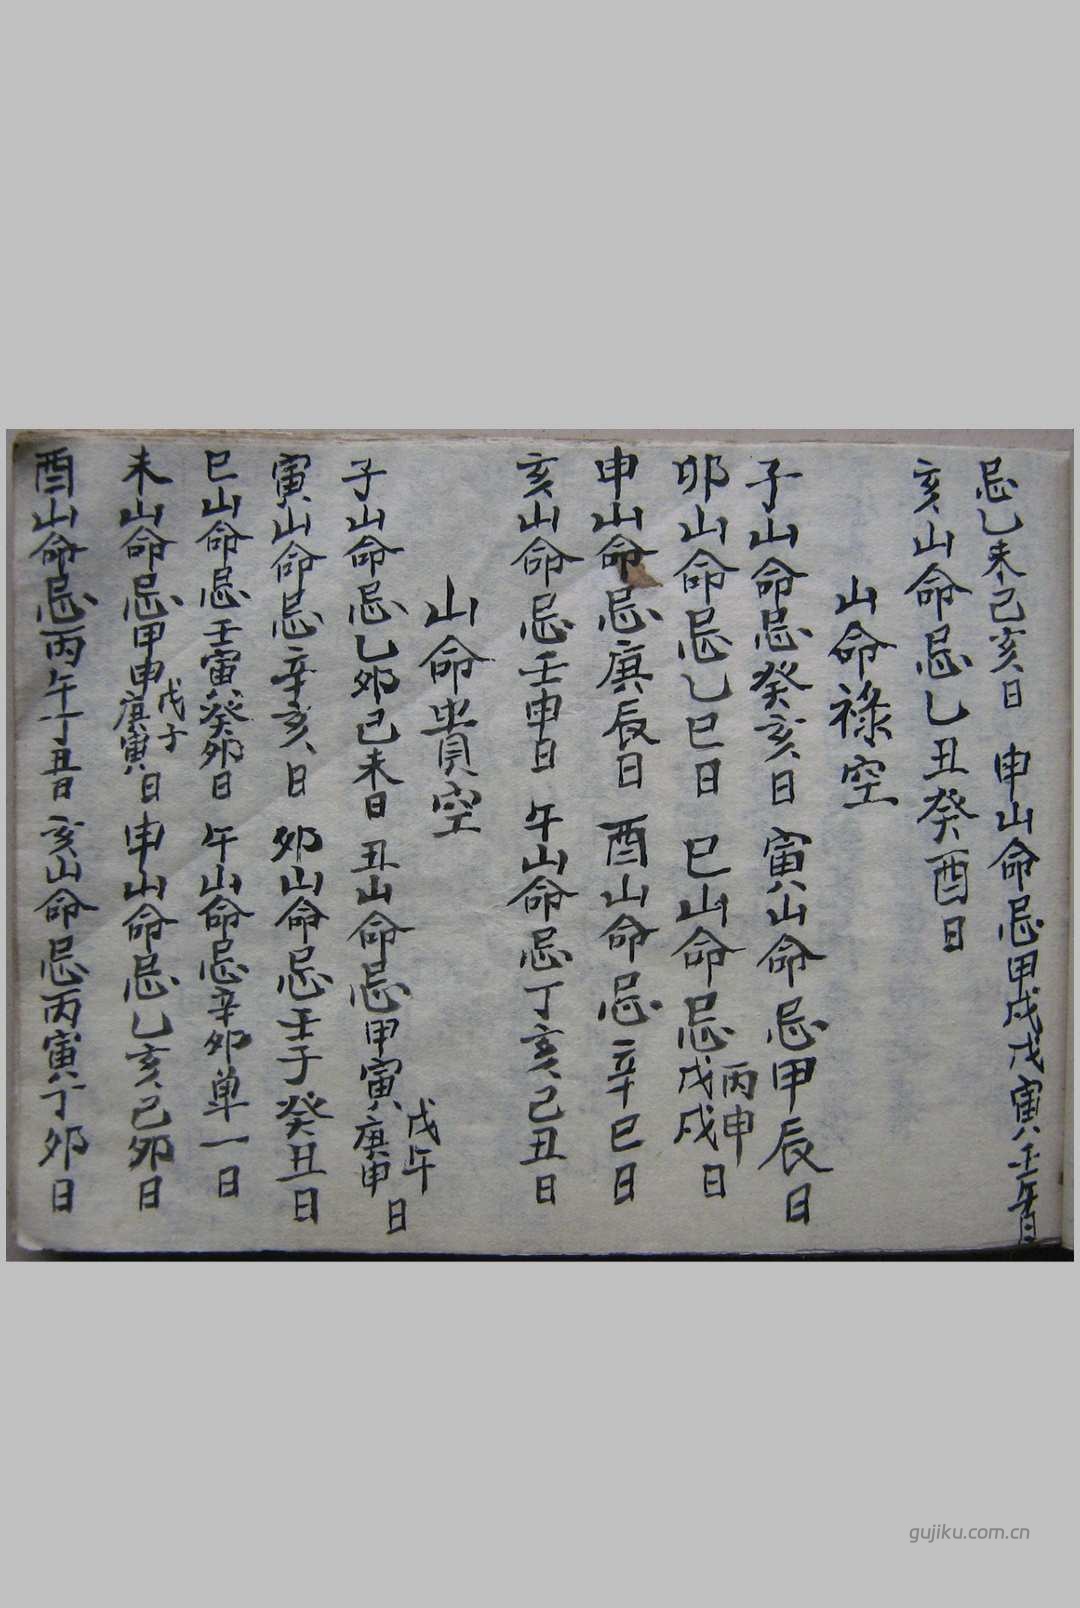 忌乙未己亥日 申山命忌甲戌戊寅壬午日
亥山命忌乙丑癸酉日
山命祿空
子山命忌癸亥日 寅山命忌甲辰日
卯山命忌乙巳日 巳山命忌丙申戊戌日
申山命忌庚辰日 酉山命忌辛巳日
亥山命忌壬申日 午山命忌丁亥己丑日
山命貴空
子山命忌乙卯己未日 丑山命忌甲寅戊午庚申日
寅山命忌辛亥日 卯山命忌壬子癸丑日
巳山命忌壬寅癸卯日 午山命忌辛卯単一日
未山命忌甲申戊子庚寅日 申山命忌乙亥己卯日
酉山命忌丙午丁丑日 亥山命忌丙寅丁卯日
gujiku.com.cn